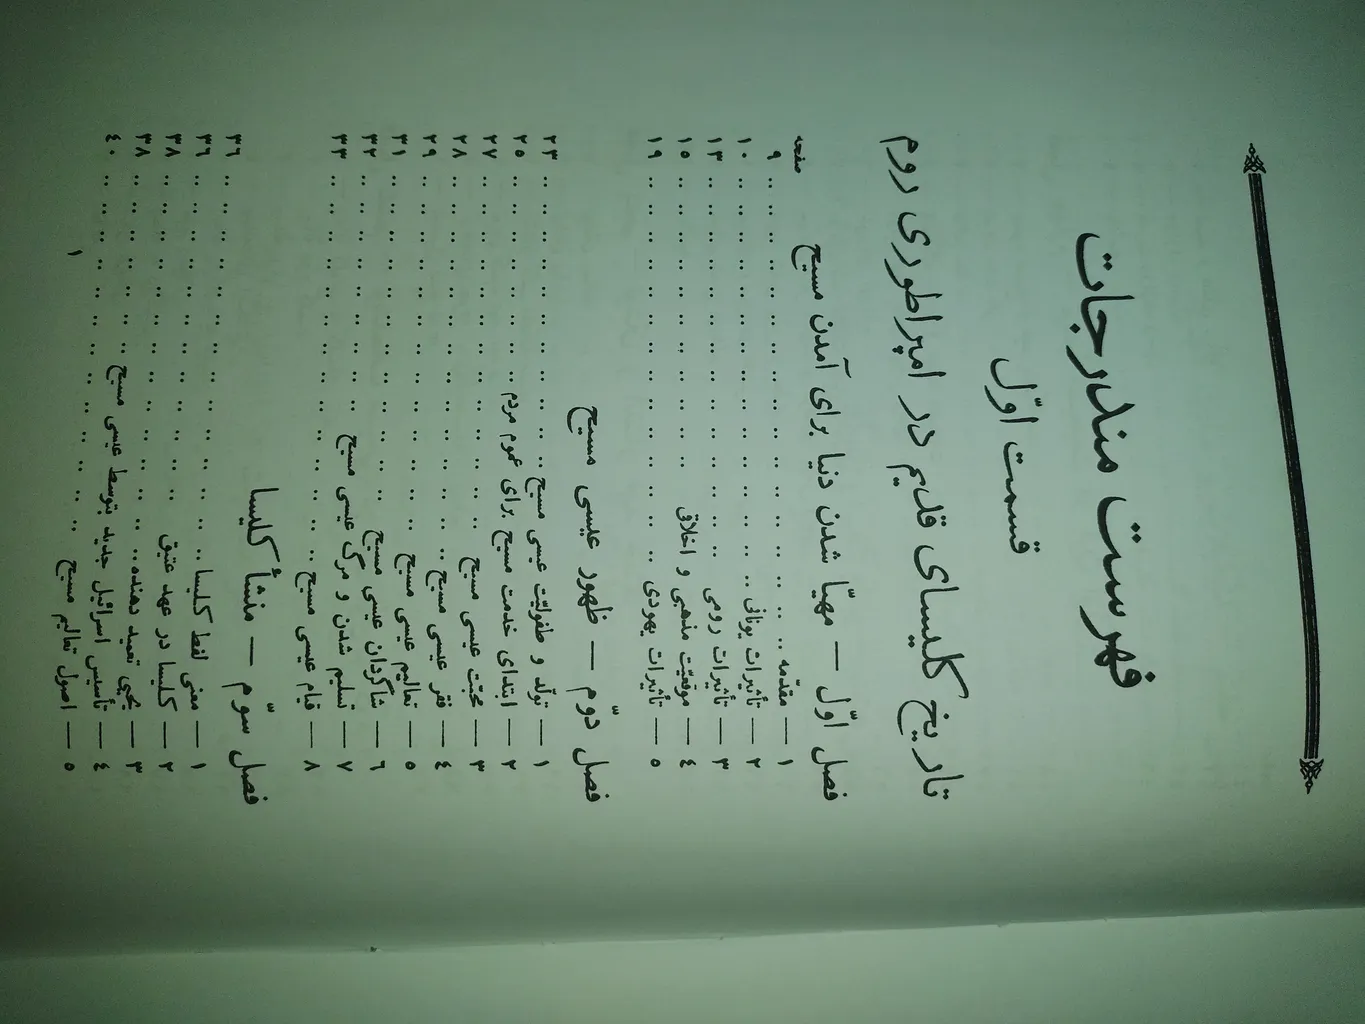 فهرست مندرجات
قسمت اوّل
تاریخ کلیسای قدیم در امپراطوری روم
فصل اوّل — مهیّا شدن دنیا برای آمدن مسیح
صفحه
۱ — مقدّمه .. .. .. .. .. .. .. .. .. .. .. .. .. .. ۹
۲ — تأثیرات یونانی .. .. .. .. .. .. .. .. .. .. .. .. .. ۱۰
۳ — تأثیرات رومی .. .. .. .. .. .. .. .. .. .. .. .. .. ۱۳
٤ — موقعیّت مذهبی و اخلاق .. .. .. .. .. .. .. .. .. .. ۱٥
٥ — تأثیرات یهودی .. .. .. .. .. .. .. .. .. .. .. .. .. ۱۹
فصل دوّم — ظهور عیسی مسیح
۱ — تولّد و طفولیّت عیسی مسیح .. .. .. .. .. .. .. .. .. .. ۲۳
۲ — ابتدای خدمت مسیح برای عموم مردم .. .. .. .. .. .. .. ۲٥
۳ — محبّت عیسی مسیح .. .. .. .. .. .. .. .. .. .. .. .. ۲۷
٤ — فقر عیسی مسیح .. .. .. .. .. .. .. .. .. .. .. .. ۲۸
٥ — تعالیم عیسی مسیح .. .. .. .. .. .. .. .. .. .. .. .. ۲۹
٦ — شاگردان عیسی مسیح .. .. .. .. .. .. .. .. .. .. .. ۳۱
۷ — تسلیم شدن و مرگ عیسی مسیح .. .. .. .. .. .. .. .. ۳۲
۸ — قیام عیسی مسیح .. .. .. .. .. .. .. .. .. .. .. .. .. ۳۳
فصل سوّم — منشأ کلیسا
۱ — معنی لفظ کلیسا .. .. .. .. .. .. .. .. .. .. .. .. .. ۳٦
۲ — کلیسا در عهد عتیق .. .. .. .. .. .. .. .. .. .. .. ۳٦
۳ — یحیی تعمید دهنده .. .. .. .. .. .. .. .. .. .. .. .. ۳۸
٤ — تأسیس اسرائیل جدید بتوسط عیسی مسیح .. .. .. .. .. .. ۳۸
٥ — اصول تعالیم مسیح .. .. .. .. .. .. .. .. .. .. .. .. ٤۰
۱